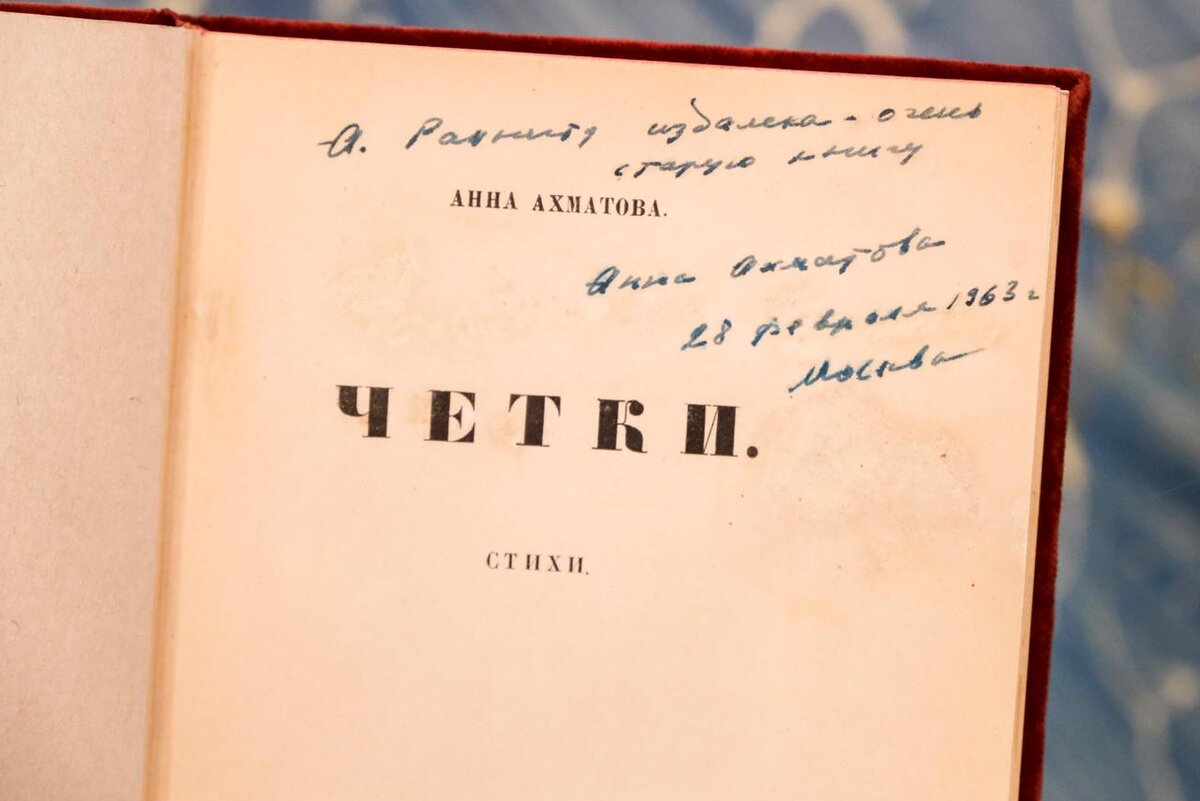 А. Ранниту издалека - очень
старую книгу
АННА АХМАТОВА.
Анна Ахматова
28 февраля 1963 г
Москва
ЧЕТКИ.
СТИХИ.